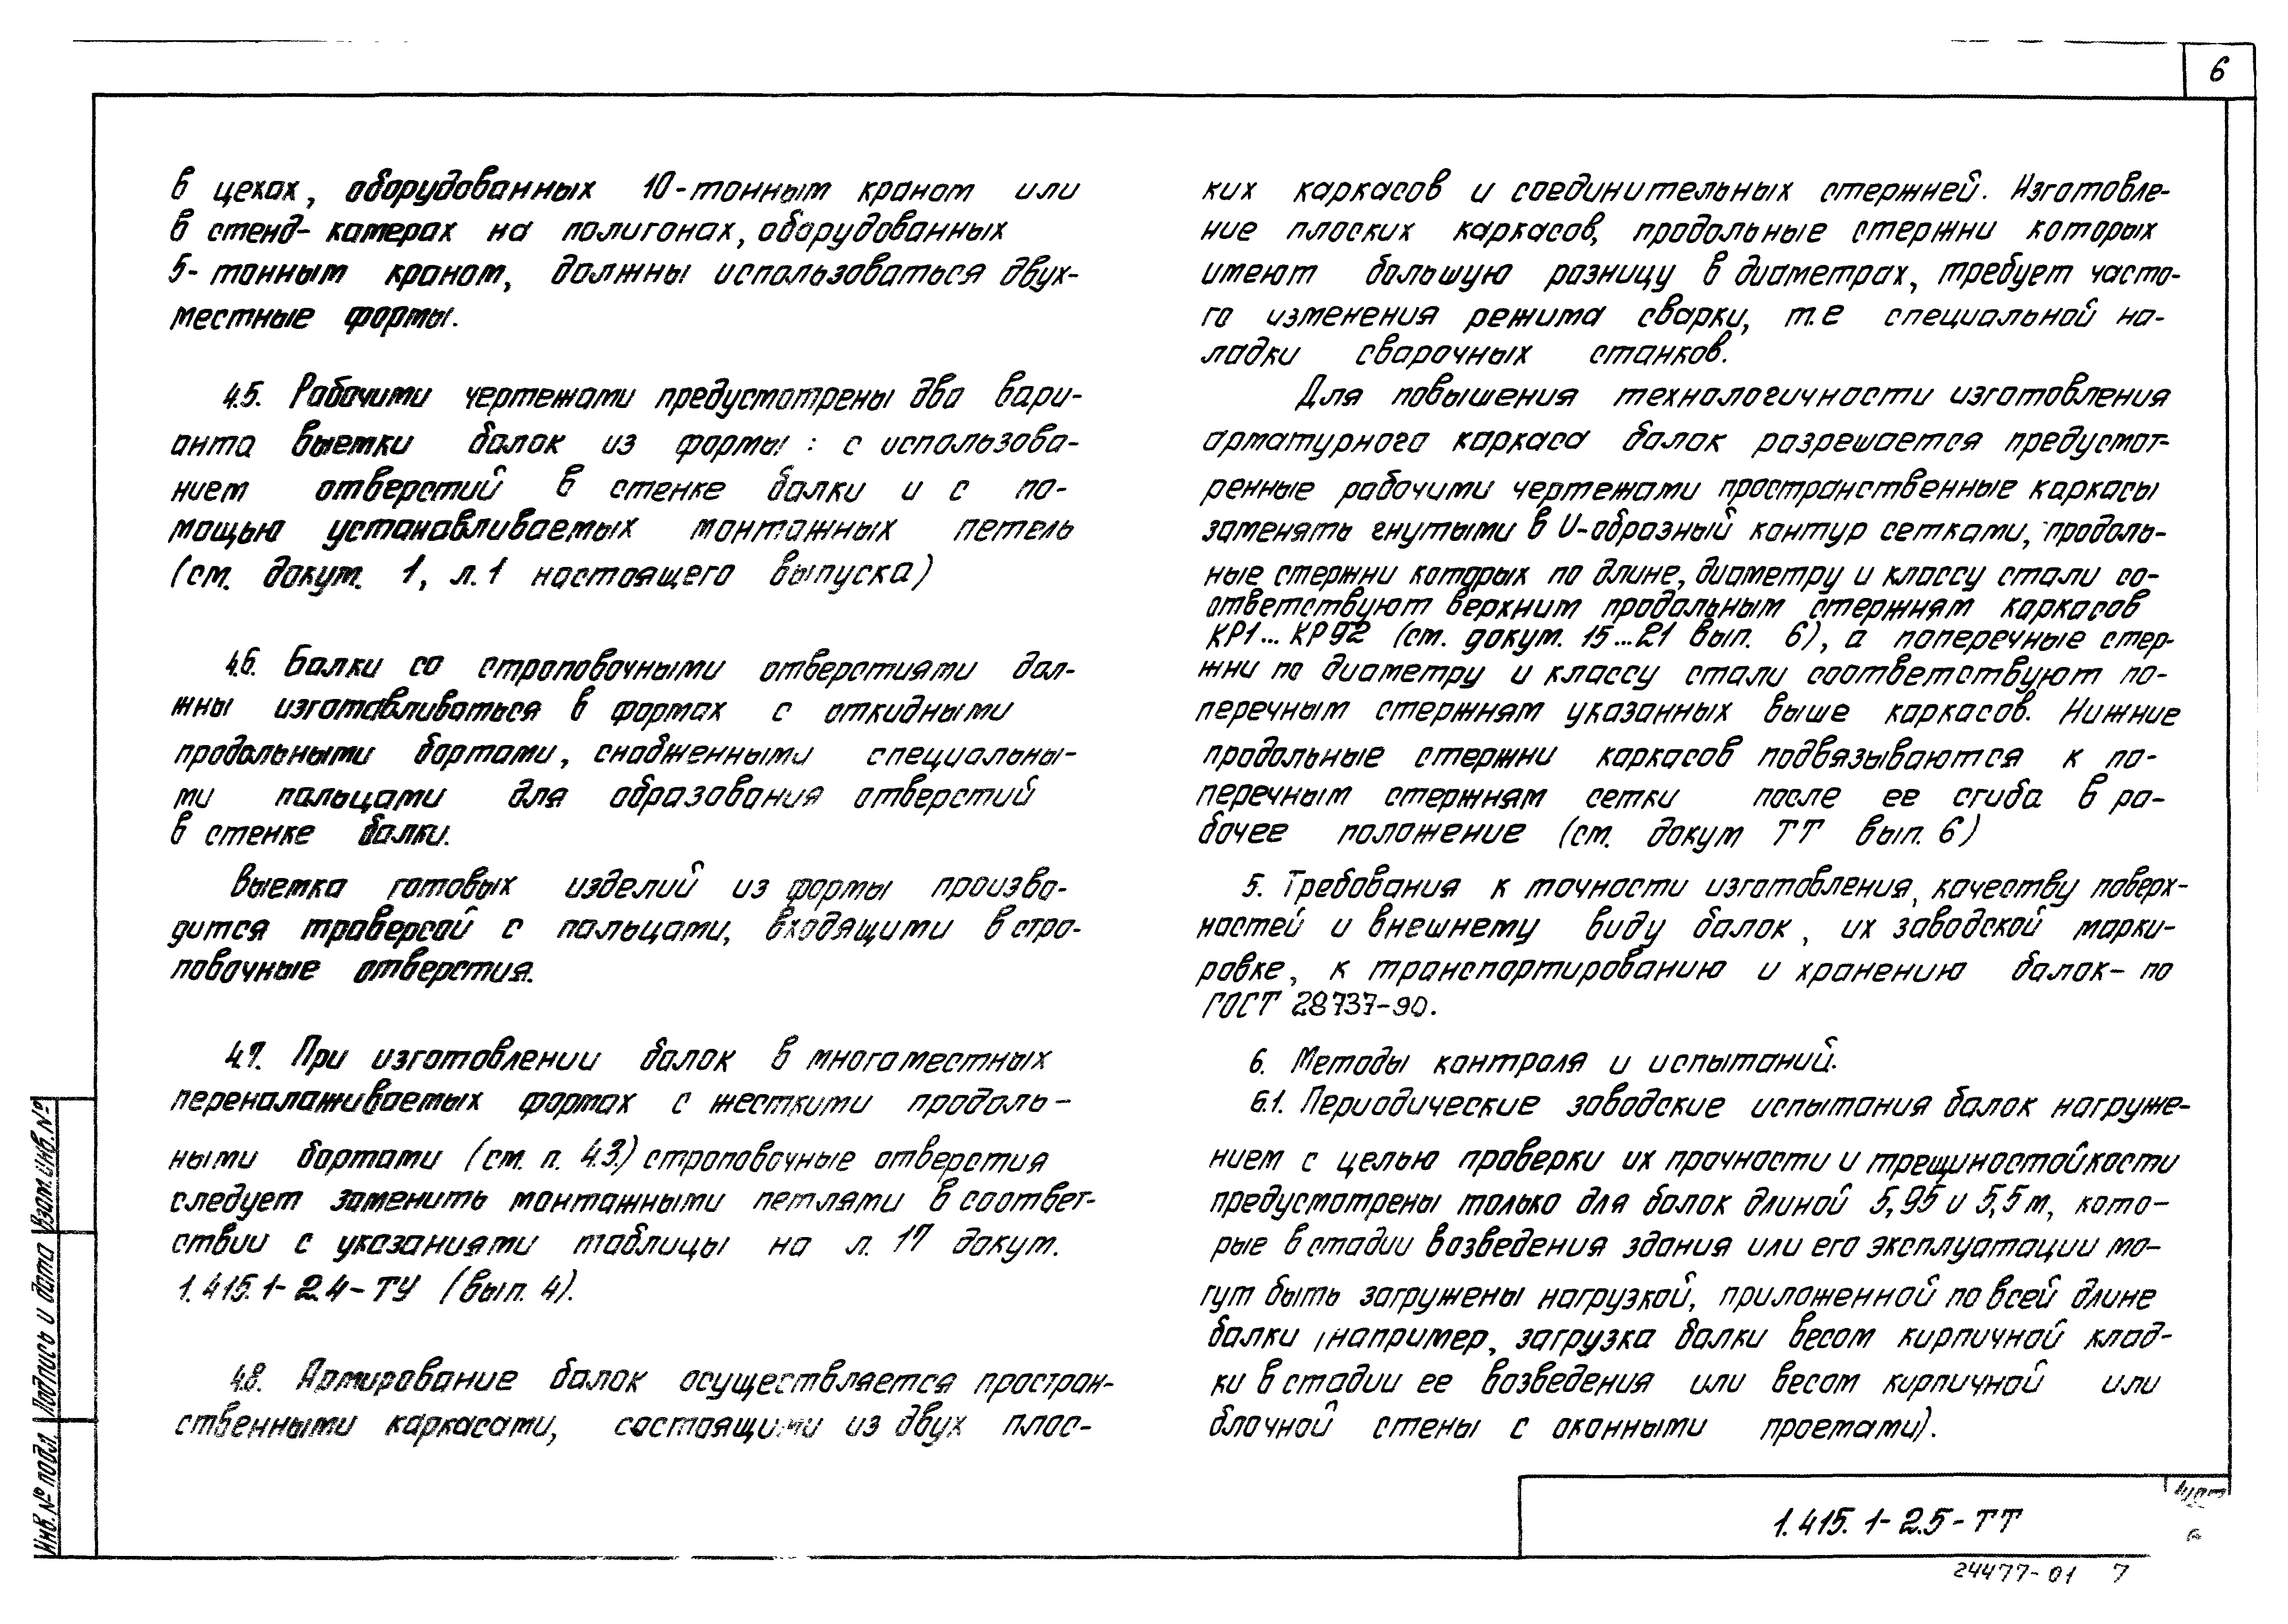 6
в цехах, оборудованных 10-тонным краном или
в стенд-камерах на полигонах, оборудованных
5-тонным краном, должны использоваться двух-
местные формы.
4.5. Рабочими чертежами предусмотрены два вари-
анта выемки балок из формы: с использова-
нием отверстий в стенке балки и с по-
мощью устанавливаемых монтажных петель
(см. докум. 1, л. 1 настоящего выпуска)
4.6. Балки со строповочными отверстиями дол-
жны изготавливаться в формах с откидными
продольными бортами, снабженными специальны-
ми пальцами для образования отверстий
в стенке балки.
Выемка готовых изделий из формы произво-
дится траверсой с пальцами, входящими в стро-
повочные отверстия.
4.7. При изготовлении балок в многоместных
переналаживаемых формах с жесткими продоль-
ными бортами (см. п. 4.3.) строповочные отверстия
следует заменить монтажными петлями в соответ-
ствии с указаниями таблицы на л. 17 докум.
1.415.1-2.4-ТУ (вып. 4).
4.8. Армирование балок осуществляется простран-
ственными каркасами, состоящими из двух плос-
ких каркасов и соединительных стержней. Изготовле-
ние плоских каркасов, продольные стержни которых
имеют большую разницу в диаметрах, требует часто-
го изменения режима сварки, т.е специальной на-
ладки сварочных станков.
Для повышения технологичности изготовления
арматурного каркаса балок разрешается предусмот-
ренные рабочими чертежами пространственные каркасы
заменять гнутыми в U-образный контур сетками, продоль-
ные стержни которых по длине, диаметру и классу стали со-
ответствуют верхним продольным стержням каркасов
КР1...КР92 (см. докум. 15...21 вып. 6), а поперечные стер-
жни по диаметру и классу стали соответствуют по-
перечным стержням указанных выше каркасов. Нижние
продольные стержни каркасов подвязываются к по-
перечным стержням сетки после ее сгиба в ра-
бочее положение (см. докум ТТ вып. 6)
5. Требования к точности изготовления, качеству поверх-
ностей и внешнему виду балок, их заводской марки-
ровке, к транспортированию и хранению балок- по
ГОСТ 28737-90.
6. Методы контроля и испытаний.
6.1. Периодические заводские испытания балок нагруже-
нием с целью проверки их прочности и трещиностойкости
предусмотрены только для балок длиной 5,95 и 5,5 м, кото-
рые в стадии возведения здания или его эксплуатации мо-
гут быть загружены нагрузкой, приложенной по всей длине
балки (например, загрузка балки весом кирпичной клад-
ки в стадии ее возведения или весом кирпичной или
блочной стены с оконными проемами).
Инв. № подл. Подпись и дата Взам. инв. №
1.415.1-2.5-ТТ
Лист
6
24477-01 7